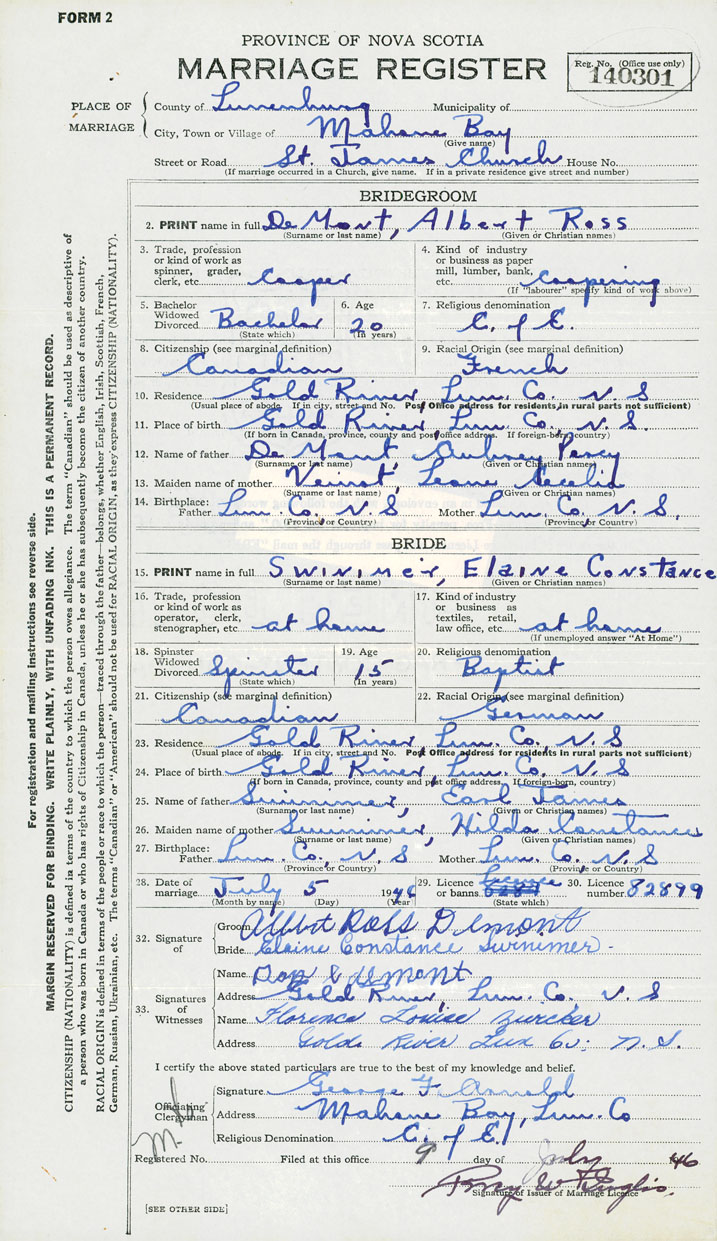 FORM 2
PROVINCE OF NOVA SCOTIA
MARRIAGE REGISTER
Reg. No. (Office use only)
140301
PLACE OF MARRIAGE
County of Lunenburg Municipality of
City, Town or Village of Mahone Bay
(Give name)
Street or Road St. James Church House No.
(If marriage occurred in a Church, give name. If in a private residence give street and number)
BRIDEGROOM
2. PRINT name in full DeMont, Albert Ross
(Surname or last name) (Given or Christian names)
3. Trade, profession or kind of work as spinner, grader, clerk, etc. Cooper
4. Kind of industry or business as paper mill, lumber, bank, etc. Coopering
(If "labourer" specify kind of work above)
5. Bachelor Widowed Divorced Bachelor
(State which)
6. Age 20
(In years)
7. Religious denomination C. of E.
8. Citizenship (see marginal definition) Canadian
9. Racial Origin (see marginal definition) French
10. Residence Gold River, Lun. Co. N. S
(Usual place of abode. If in city, street and No. Post Office address for residents in rural parts not sufficient)
11. Place of birth Gold River Lun. Co. N. S.
(If born in Canada, province, county and post office address. If foreign-born, country)
12. Name of father De Mont Aubrey Percy
(Surname or last name) (Given or Christian names)
13. Maiden name of mother Veinot, Leone Cecelia
(Surname or last name) (Given or Christian names)
14. Birthplace: Father Lun. Co. N. S Mother Lun. Co. N. S.
(Province or Country) (Province or Country)
BRIDE
15. PRINT name in full Swinimer, Elaine Constance
(Surname or last name) (Given or Christian names)
16. Trade, profession or kind of work as operator, clerk, stenographer, etc. at home
17. Kind of industry or business as textiles, retail, law office, etc. at home
(If unemployed answer "At Home")
18. Spinster Widowed Divorced Spinster
(State which)
19. Age 15
(In years)
20. Religious denomination Baptist
21. Citizenship (see marginal definition) Canadian
22. Racial Origin (see marginal definition) German
23. Residence Gold River Lun. Co. N. S
(Usual place of abode. If in city, street and No. Post Office address for residents in rural parts not sufficient)
24. Place of birth Gold River, Lun. Co. N. S
(If born in Canada, province, county and post office address. If foreign-born, country)
25. Name of father Swinimer, Earl James
(Surname or last name) (Given or Christian names)
26. Maiden name of mother Swinimer, Hilda Constance
(Surname or last name) (Given or Christian names)
27. Birthplace: Father Lun. Co., N. S Mother Lun. Co., N. S
(Province or Country) (Province or Country)
28. Date of marriage July 5 1946
(Month by name) (Day) (Year)
29. Licence or banns licence
(State which)
30. Licence number 82899
32. Signature of
Groom Albert Ross Demont
Bride Elaine Constance Swinimer
33. Signatures of Witnesses
Name Demont
Address Gold River, Lun. Co. N. S
Name Florence Louise Zurcker
Address Gold River Lun Co. N. S.
I certify the above stated particulars are true to the best of my knowledge and belief.
Officiating Clergyman
Signature George F Arnold
Address Mahone Bay, Lun. Co
Religious Denomination C. of E.
Registered No. Filed at this office 9 day of July 46
Signature of Issuer of Marriage Licence
[SEE OTHER SIDE]
For registration and mailing instructions see reverse side.
MARGIN RESERVED FOR BINDING. WRITE PLAINLY, WITH UNFADING INK. THIS IS A PERMANENT RECORD.
CITIZENSHIP (NATIONALITY) is defined in terms of the country to which the person owes allegiance. The term "Canadian" should be used as descriptive of
a person who was born in Canada or who has rights of Citizenship in Canada, unless he or she has subsequently become the citizen of another country.
RACIAL ORIGIN is defined in terms of the people or race to which the person—traced through the father—belongs, whether English, Irish, Scottish, French,
German, Russian, Ukrainian, etc. The terms "Canadian" or "American" should not be used for RACIAL ORIGIN, as they express CITIZENSHIP (NATIONALITY).